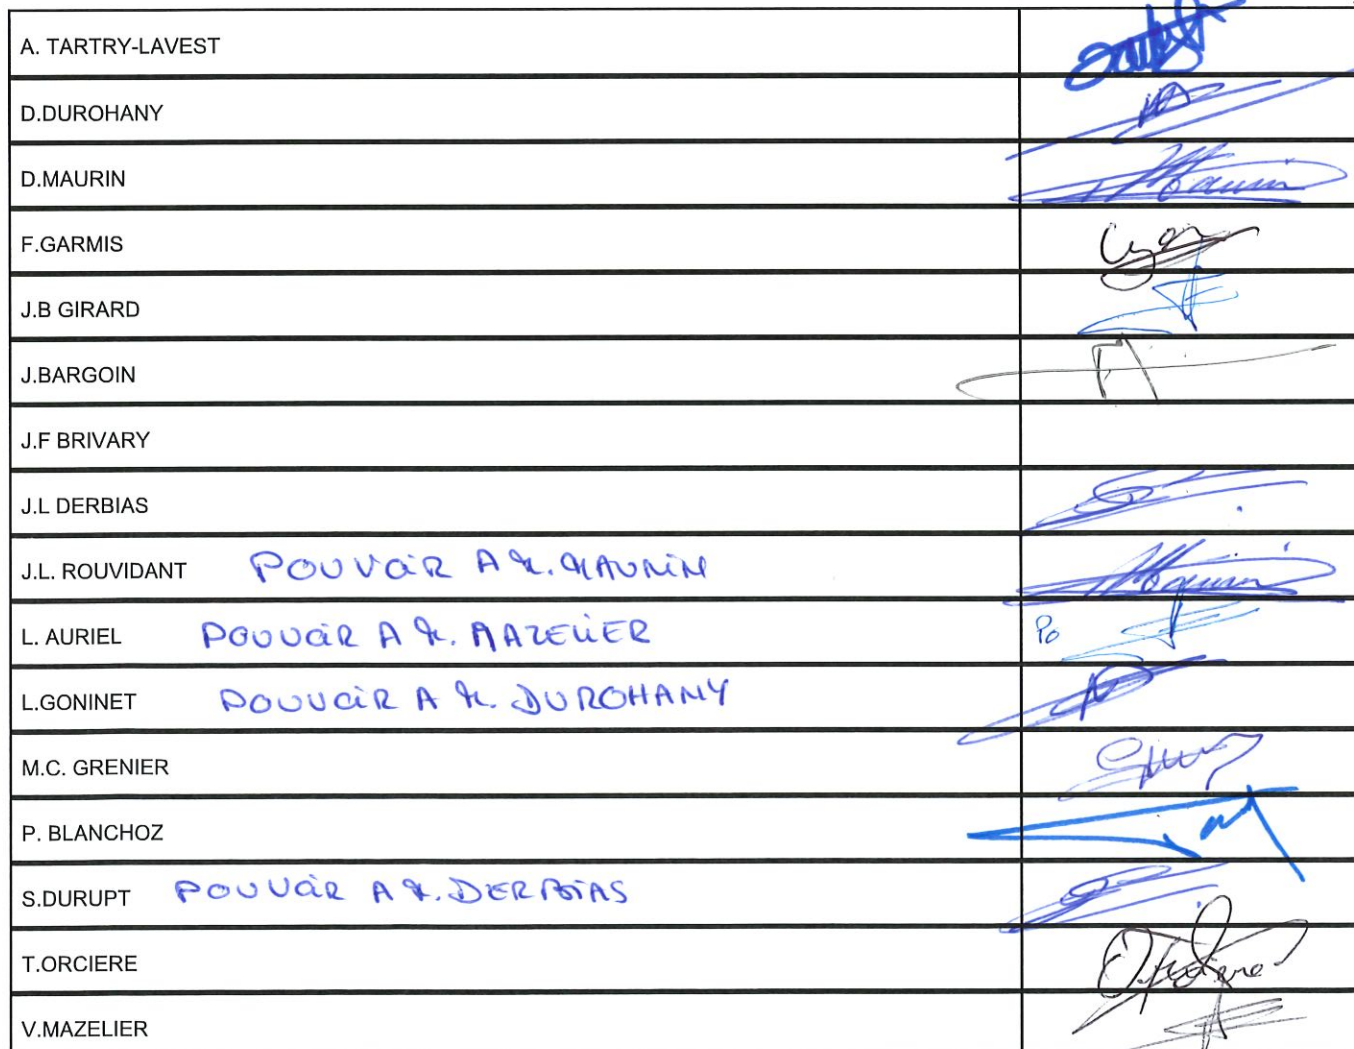 A. TARTRY-LAVEST
D.DUROHANY
D.MAURIN
F.GARMIS
J.B GIRARD
J.BARGOIN
J.F BRIVARY
J.L DERBIAS
J.L. ROUVIDANT POUVOIR A M. MAURIN
L. AURIEL POUVOIR A M. MAZELIER Po
L.GONINET POUVOIR A M. DUROHANY
M.C. GRENIER
P. BLANCHOZ
S.DURUPT POUVOIR A M. DERBIAS
T.ORCIERE
V.MAZELIER